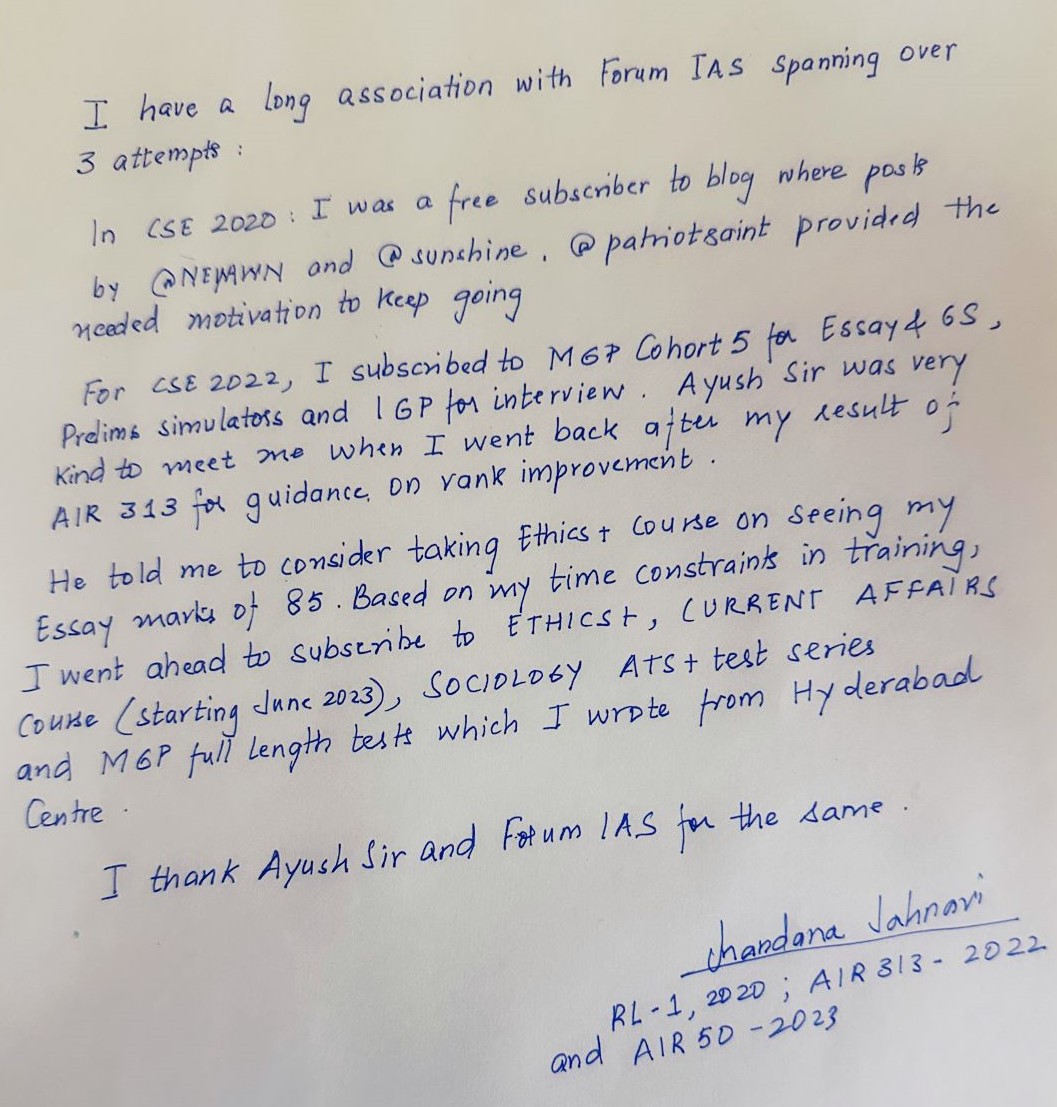 I have a long association with Forum IAS spanning over
3 attempts :
In CSE 2020 : I was a free subscriber to blog where posts
by @NEYAWN and @sunshine, @patriotsaint provided the
needed motivation to keep going
For CSE 2022, I subscribed to MGP Cohort 5 for Essay & GS,
Prelims simulators and IGP for interview. Ayush Sir was very
kind to meet me when I went back after my result of
AIR 313 for guidance on rank improvement.
He told me to consider taking Ethics+ Course on seeing my
Essay marks of 85. Based on my time constraints in training,
I went ahead to subscribe to ETHICS+, CURRENT AFFAIRS
Course (starting June 2023), SOCIOLOGY ATS+ test series
and MGP full length tests which I wrote from Hyderabad
Centre.
I thank Ayush Sir and Forum IAS for the same.
Chandana Jahnavi
RL-1, 2020 ; AIR 313 - 2022
and AIR 50 - 2023